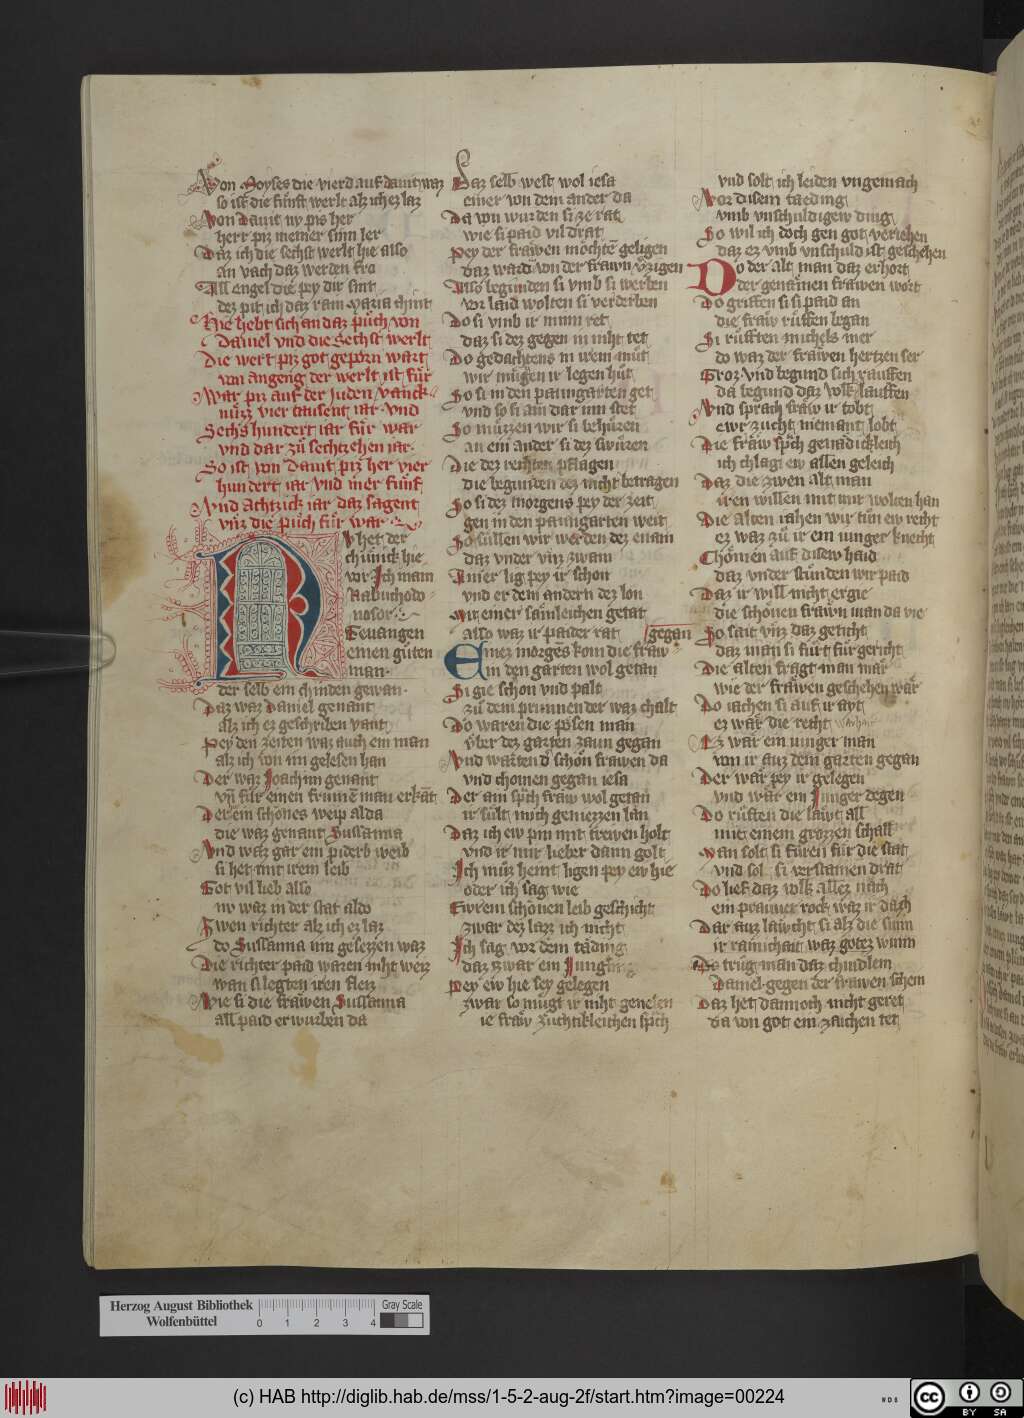 Von Moyses die vierd auf dauit waz
so ist die fünft werlt alz ich ez laz
Von Dauit vncz piz her
herr piz meiner sinn ler
Daz ich die sechst werlt hie also
an vach daz werden fro
All engel die pey dir sint
dez pit ich daz rain Maria chint
Hie hebt sich an daz püch von
Daniel vnd die Sechst werlt
Die wert piz got geporn wart
von angeng der werlt ist für
war piz auf der Juden
vier tausent iar vnd
Sechs hundert iar für war
vnd dar zü sechtzehen iar
So ist von Dauit piz her vier
hundert iar vnd mer fünf
Vnd Achtzick iar daz sagent
vnz die püch für war
Nv het der
chünick hie
vor Ich main
Nabuchodo
nosor
Gevangen
einen güten
man
der selb ein chinden gewan
Daz waz Daniel genant
alz ich ez geschriben vant
Pey den zeiten waz auch ein man
alz ich von im gelesen han
Der waz Joachim genant
vñ für einen frume man erkāt
Der ein schönes weip alda
die waz genant Sussanna
Vnd waz gar ein piderb weib
si het mit irem leib
Got vil lieb also
nv waz in der stat aldo
Zwen richter alz ich ez laz
do Sussanna inn gesezzen waz
Die richter paid waren niht weiz
wan si legten iren fleiz
Wie si die frawen Sussanna
all paid erwurben da
Daz selb west wol iesa
einer von dem ander da
Da von wurden si ze rat
wie si paid vil drat
Pey der frawen möchtē geligen
daz ward von der frawn vzigen
Also begunden si vmb si werben
vor laid wolten si verderben
Do si vmb ir minn ret
daz si dez gegen in niht tet
Do gedachtens in irem müt
wir mügen ir legen hüt
So si in den paumgarten get
vnd so si ain dar inn stet
So müzzen wir si behüten
an ein ander si dez swüren
Die dez rechten pflagen
die begunden dez nicht betragen
So si dez morgens pey der zeit
gen in den paumgarten weit
So süllen wir werden dez enain
daz vnder vnz zwain
Ainer lig pey ir schon
vnd er dem andern dez lon
Mit einer sämleichen getat
also waz ir paider rat
gegan
Einez morges kom die fraw
in den garten wol getan
Si gie schon vnd palt
zü dem prunnen der waz chalt
Do waren die pösen man
vber dez garten zaun gegan
Vnd warten d schön frawen da
vnd chomen gegan iesa
Der ain spch fraw wol getan
ir sült mich geniezzen lan
Daz ich ew pin mit trewen holt
vnd ir mir lieber dann golt
Ich müz heint ligen pey ew hie
oder ich sag wie
Ewrem schönen leib geschicht
zwar dez lazz ich nicht
Ich sag vor dem täding
daz zwar ein Jungling
Pey ew hie sey gelegen
zwar so mügt ir niht genesen
ie fraw zuchtikleichen spch
vnd solt ich leiden vngemach
Vor disem taeding
vmb vnschuldigew ding
So wil ich doch gen got veriehen
daz ez vmb vnschuld ist geschehen
Do der alt man daz erhort
der genämen frawen wort
Do griffen si si paid an
die fraw rüffen began
Si rüfften michels mer
do waz der frawen hertzen ser
Groz vnd begund sich rauffen
da begund daz volk lauffen
Vnd sprach fraw ir tobt
ewr zucht niemant lobt
Die fraw spch genadickleich
ich chlag ew allen geleich
Daz die zwen alt man
iren willen mit mir wolten han
Die alten iahen wir tün ew recht
ez waz zü ir ein iunger knecht
Chömen auf disew haid
daz vnder stunden wir paid
Daz ir will nicht ergie
die schönen frawn man da vie
So sait vnz daz geticht
daz man si fürt für gericht
Die alten fragt man mär
wie der frawen geschehen wär
Do iachen si auf ir ayt
ez wär die recht warhait
Ez wär ein iunger man
von ir auz dem garten gegan
Der wär pey ir gelegen
vnd wär ein Junger degen
Do rüften die lawt all
mit einem grozzen schall
Man solt si füren für die stat
vnd solt si verstainen drat
Do lief daz volk allez nach
ein prauner rock waz ir dach
Dar auz lawcht si alz die sunn
ir rainchait waz gotez wunn
Do trüg man daz chindlein
Daniel gegen der frawen schein
Daz het dannoch nicht geret
da von got ein zaichen tet
Herzog August Bibliothek
Wolfenbüttel
0 1 2 3 4
Gray Scale
(c) HAB http://diglib.hab.de/mss/1-5-2-aug-2f/start.htm?image=00224
WD6
CC BY SA